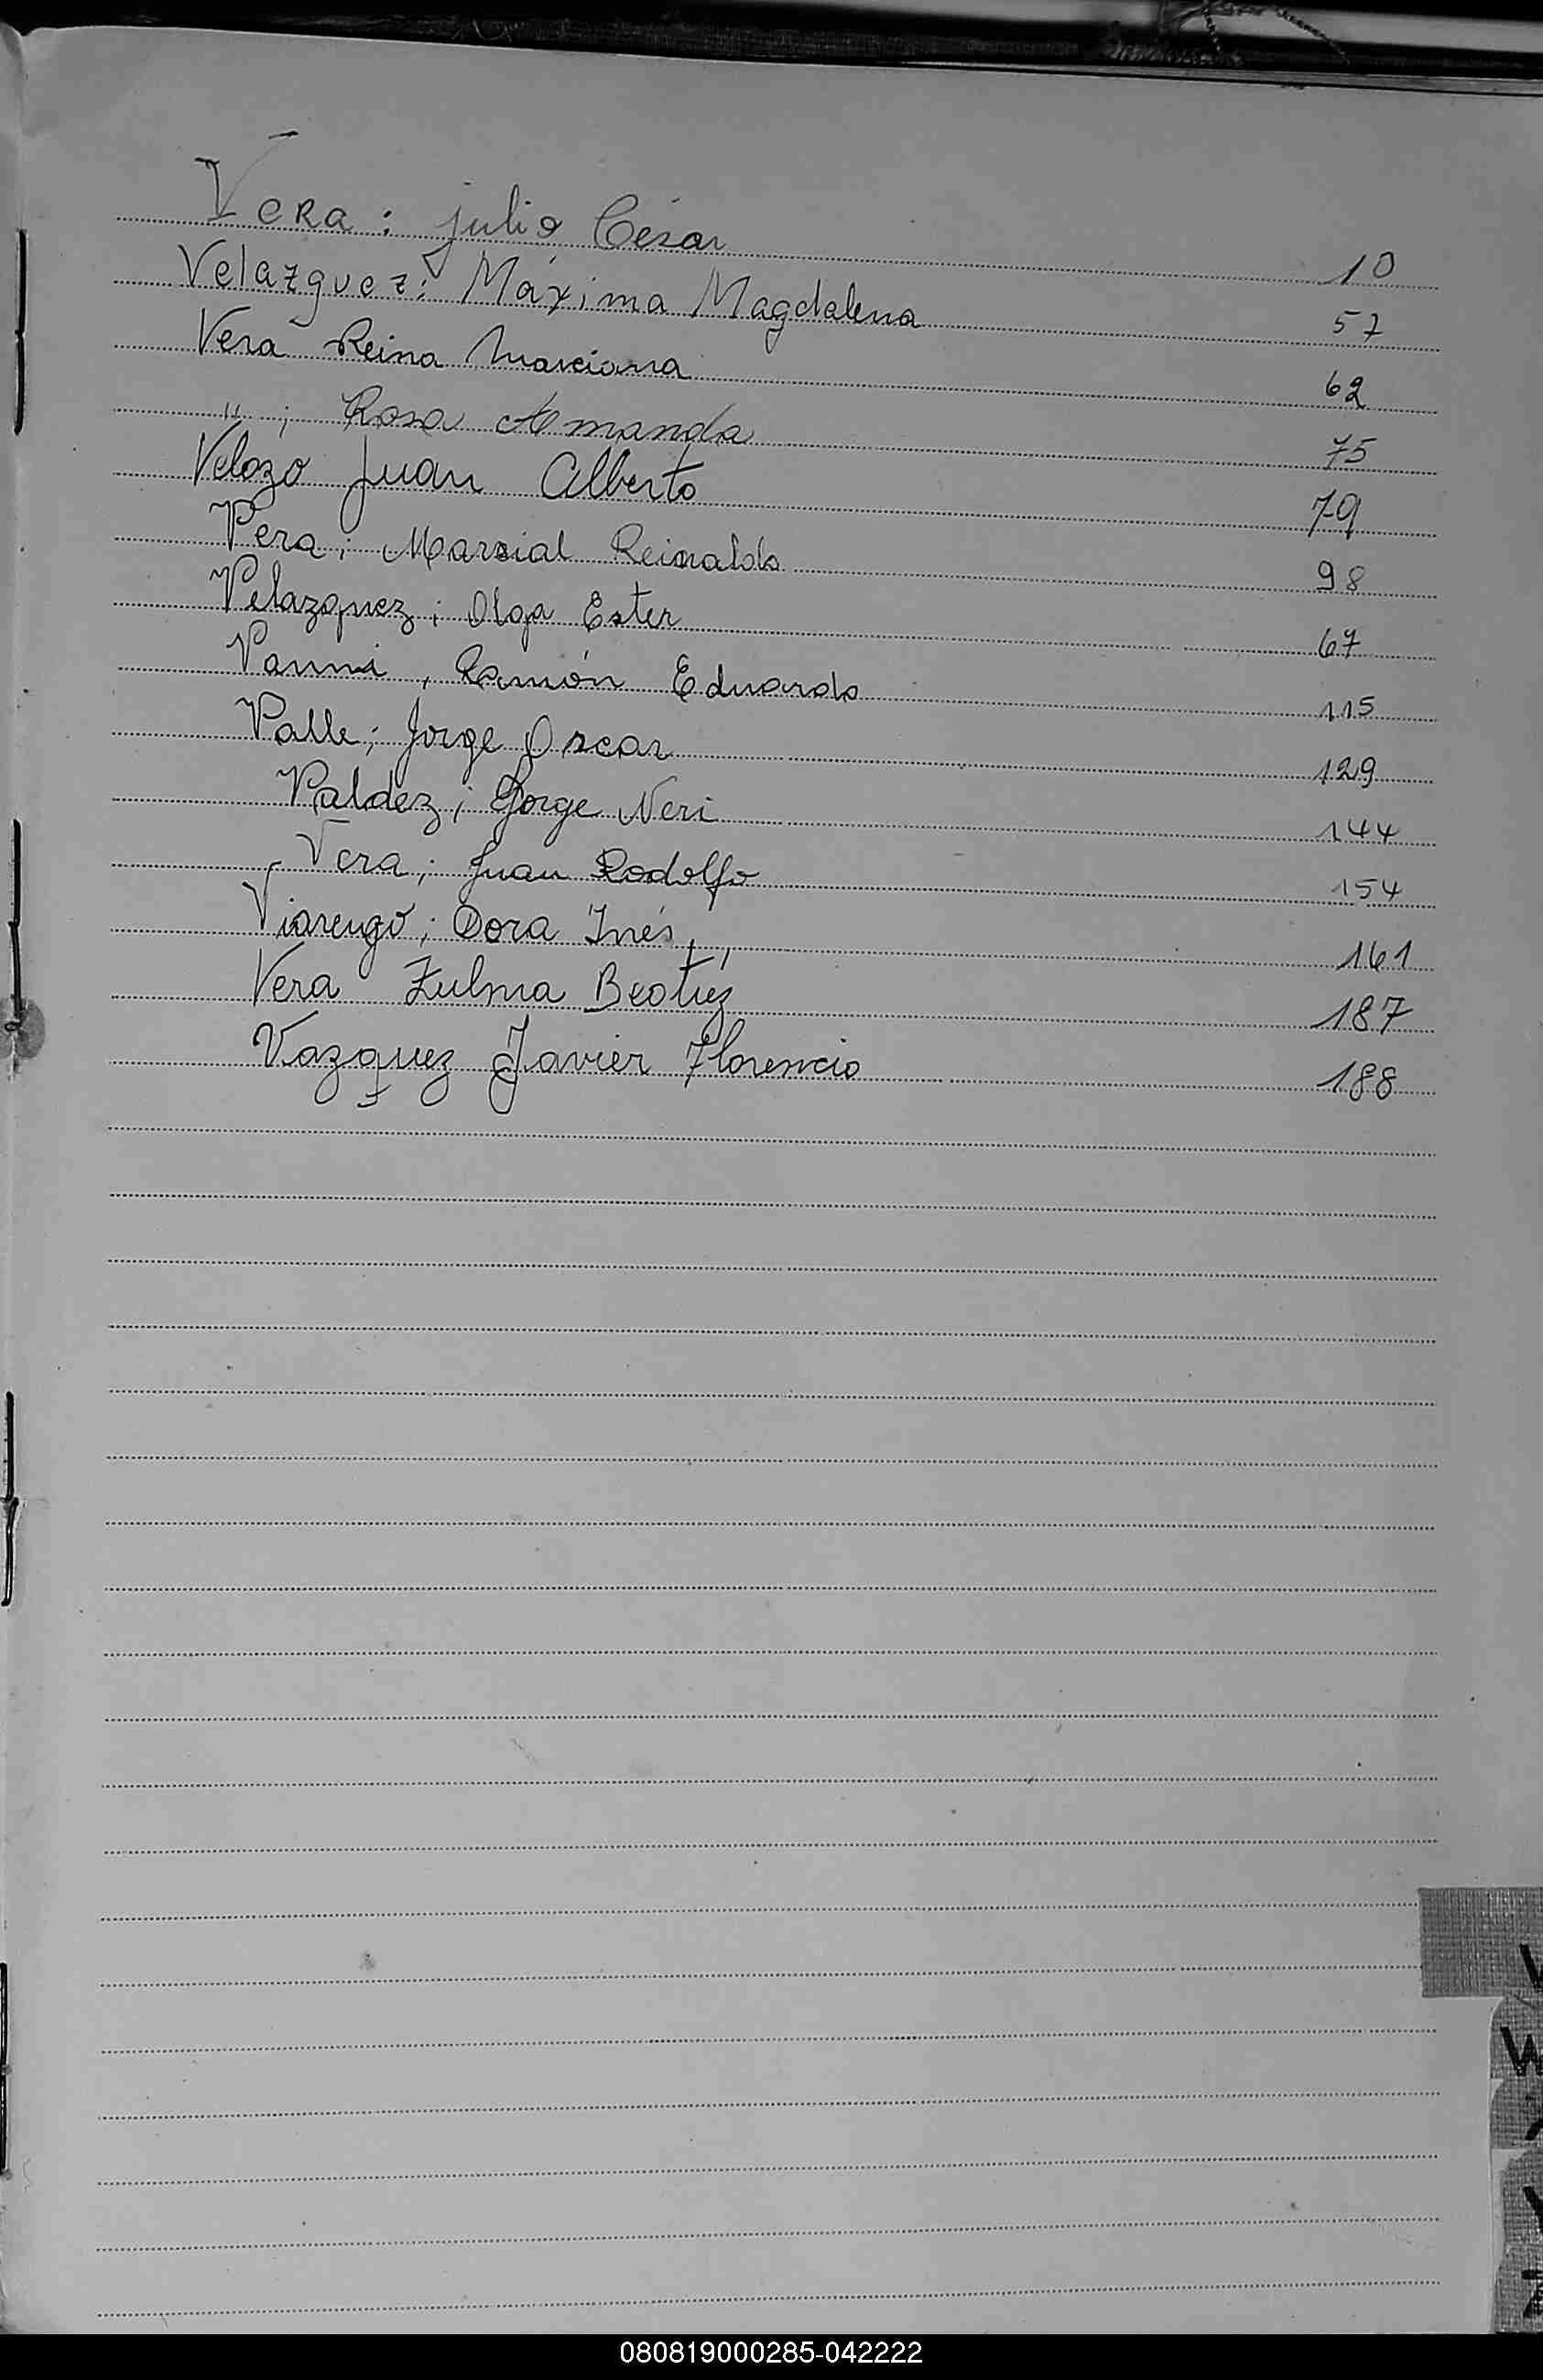 Vera: Julio César 10
Velazquez: Máxima Magdalena 57
Vera Reina Marciana 62
" ; Rosa Amanda 75
Velozo Juan Alberto 79
Vera; Marcial Reinaldo 98
Velazquez; Olga Ester 67
Vanni, Ramón Eduardo 115
Valle; Jorge Oscar 129
Valdez; Jorge Neri 144
Vera; Juan Rodolfo 154
Viarengo; Dora Inés 161
Vera Zulma Beatriz 187
Vazquez Javier Florencio 188
V
W
080819000285-042222